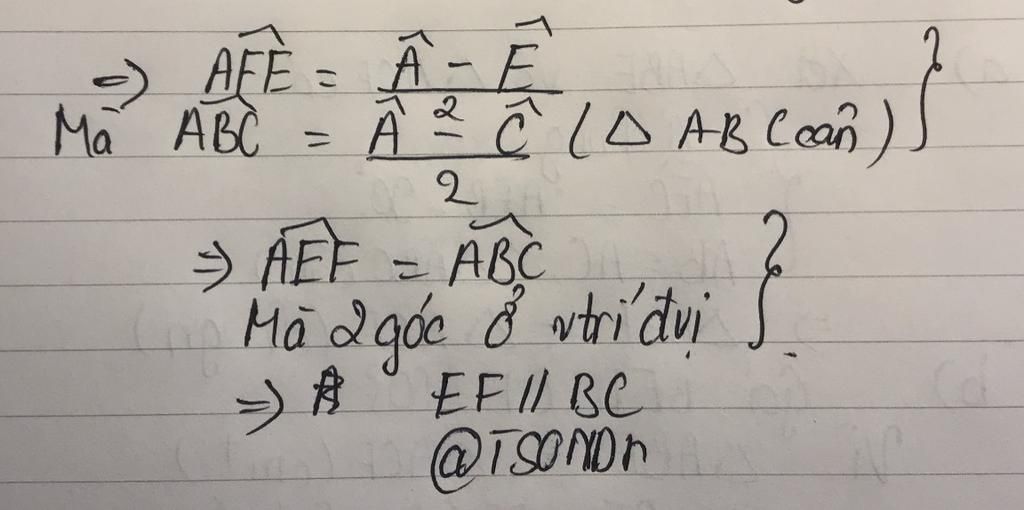 ⇒ AFE = Â - Ê / 2
Mà ABC = Â - Ĉ / 2 (△ ABC cân)
⇒ AEF = ABC
Mà 2 góc ở vtrí đvị
⇒ EF // BC
@TSONDn